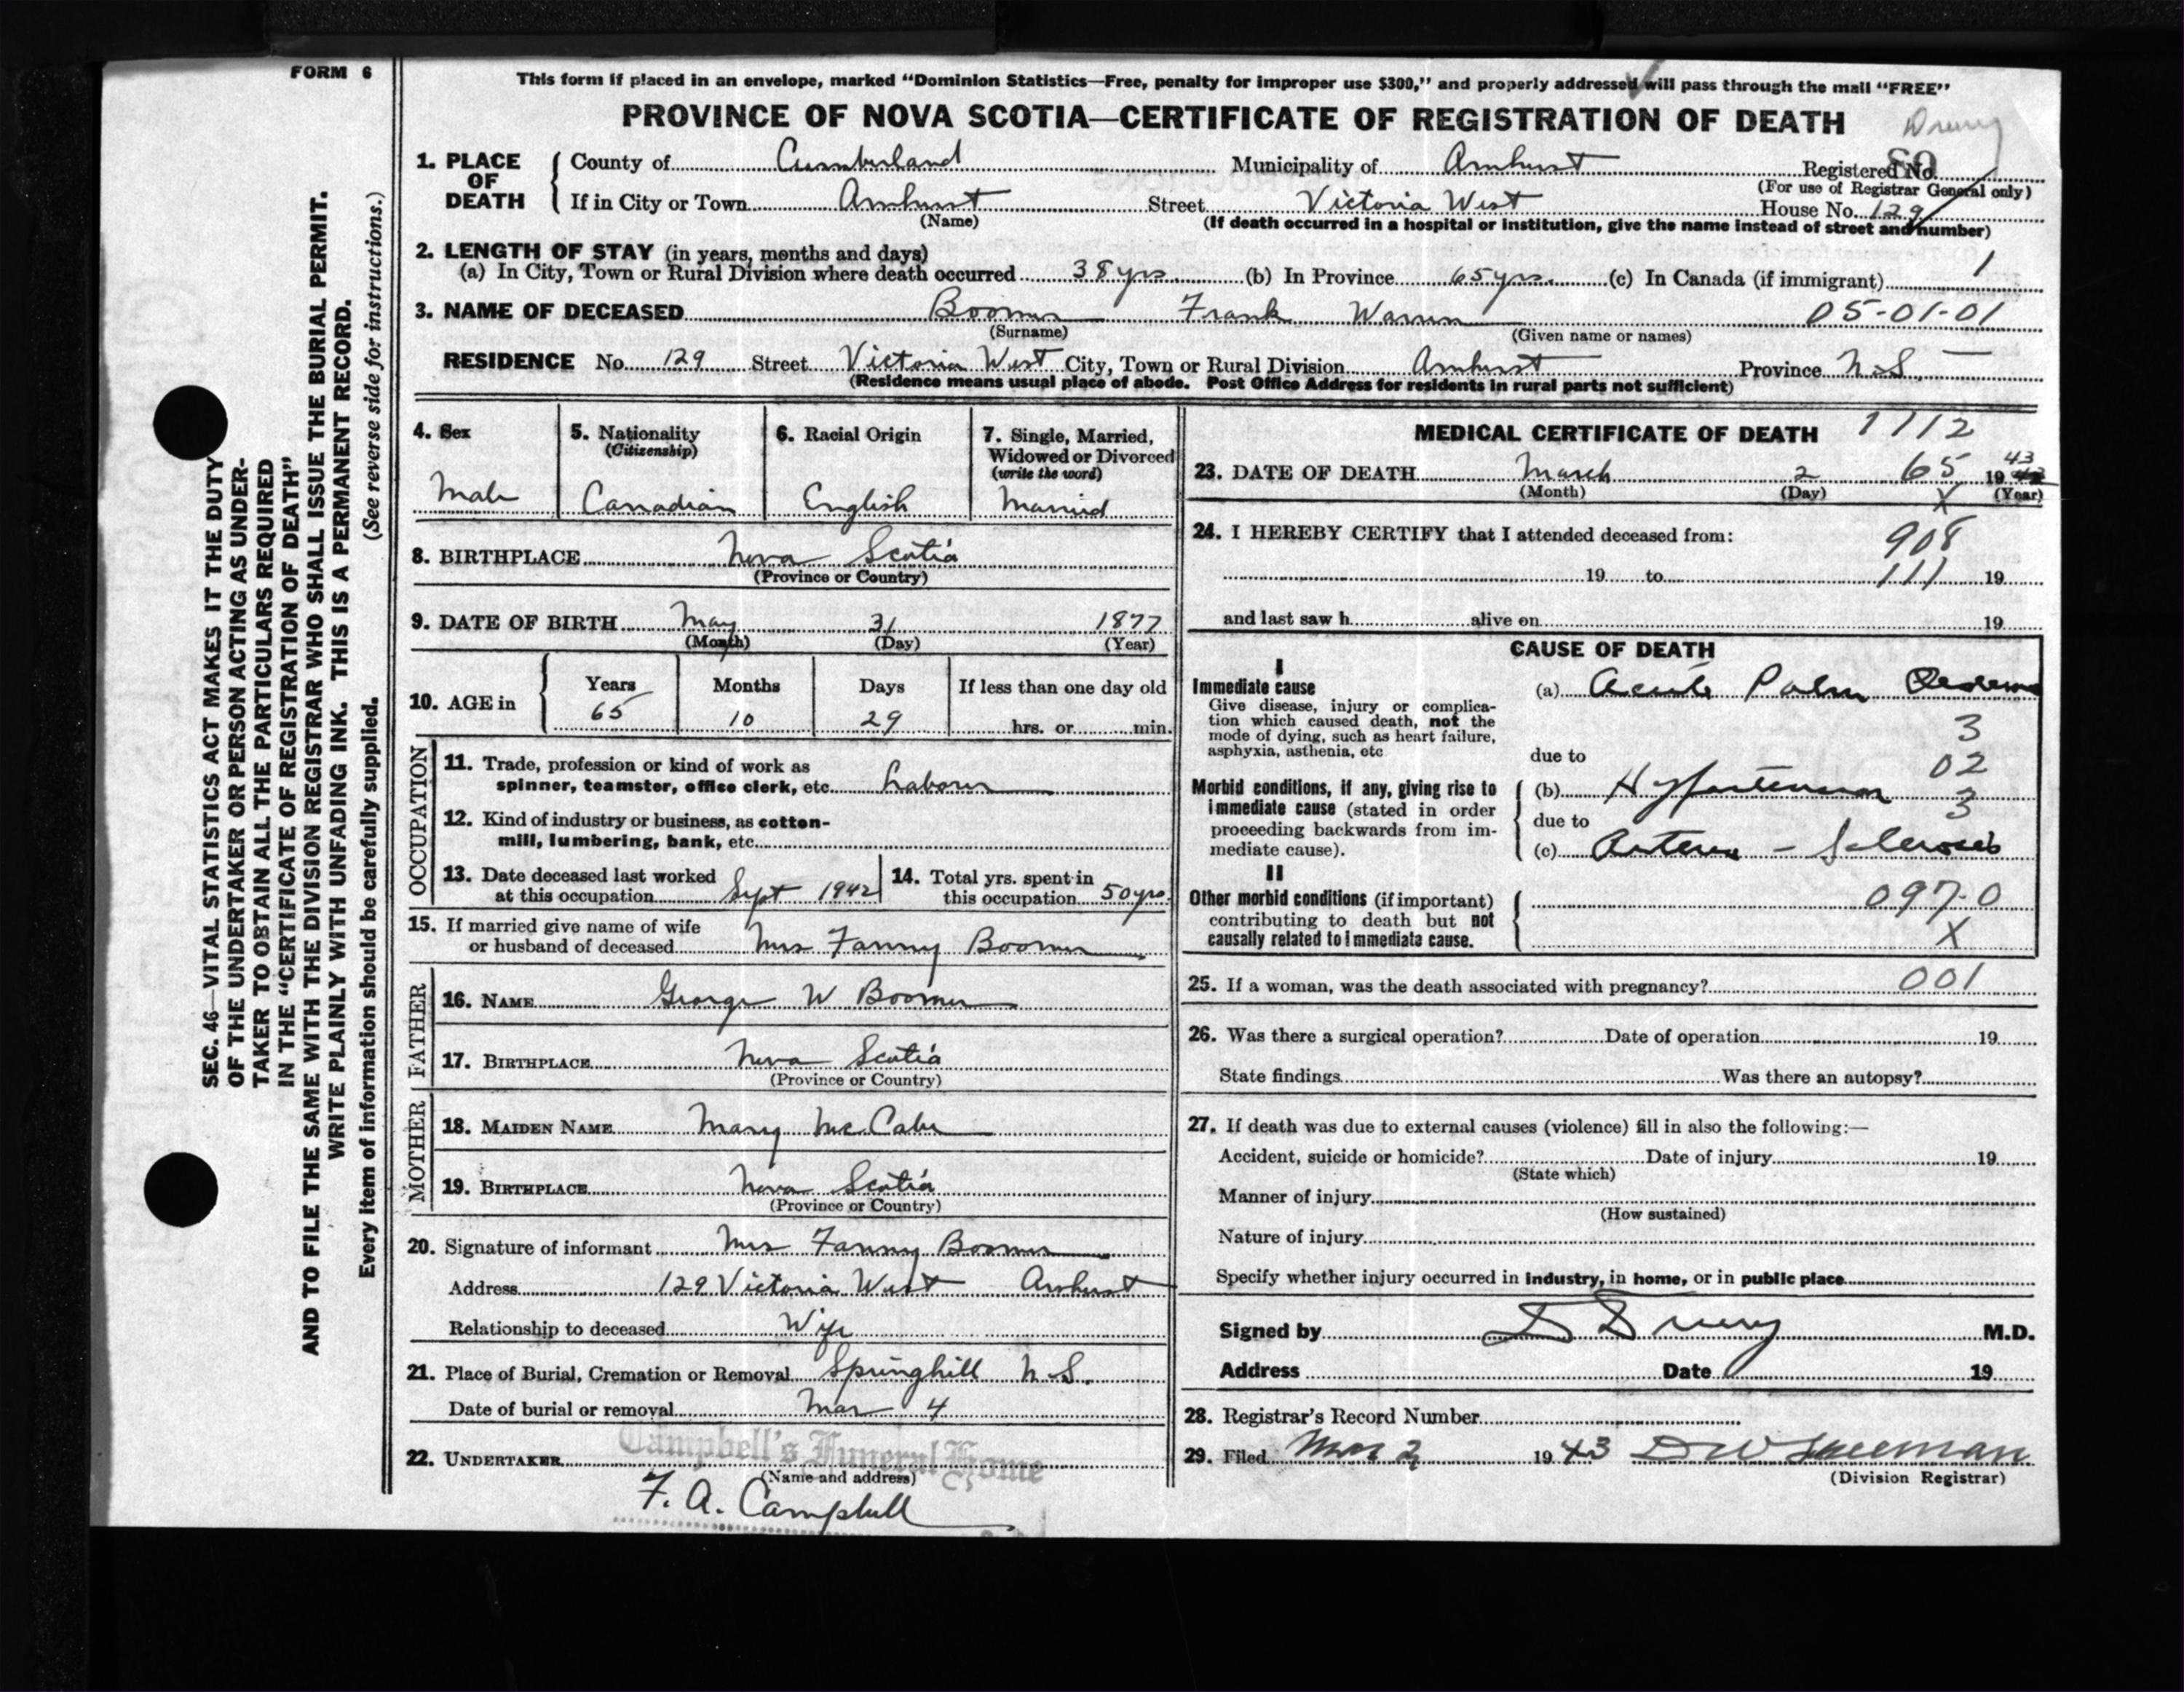 FORM 6
This form if placed in an envelope, marked "Dominion Statistics—Free, penalty for improper use $300," and properly addressed will pass through the mail "FREE"
PROVINCE OF NOVA SCOTIA—CERTIFICATE OF REGISTRATION OF DEATH
Drury
1. PLACE OF DEATH
County of Cumberland Municipality of Amherst Registered No.
(For use of Registrar General only)
If in City or Town Amherst Street Victoria West House No. 129
(Name)
(If death occurred in a hospital or institution, give the name instead of street and number)
2. LENGTH OF STAY (in years, months and days)
(a) In City, Town or Rural Division where death occurred 38 yrs (b) In Province 65 yrs. (c) In Canada (if immigrant) 1
3. NAME OF DECEASED Boomer Frank Warren 05-01-01
(Surname) (Given name or names)
RESIDENCE No. 129 Street Victoria West City, Town or Rural Division Amherst Province N.S.
(Residence means usual place of abode. Post Office Address for residents in rural parts not sufficient)
4. Sex
Male
5. Nationality
(Citizenship)
Canadian
6. Racial Origin
English
7. Single, Married,
Widowed or Divorced
(write the word)
Married
8. BIRTHPLACE Nova Scotia
(Province or Country)
9. DATE OF BIRTH May 31 1877
(Month) (Day) (Year)
10. AGE in
Years Months Days If less than one day old
65 10 29 hrs. or min.
OCCUPATION
11. Trade, profession or kind of work as
spinner, teamster, office clerk, etc. Laborer
12. Kind of industry or business, as cotton-
mill, lumbering, bank, etc.
13. Date deceased last worked
at this occupation Sept 1942
14. Total yrs. spent in
this occupation 50 yrs.
15. If married give name of wife
or husband of deceased Mrs Fanny Boomer
FATHER
16. NAME George W Boomer
17. BIRTHPLACE Nova Scotia
(Province or Country)
MOTHER
18. MAIDEN NAME Mary McCabe
19. BIRTHPLACE Nova Scotia
(Province or Country)
20. Signature of informant Mrs Fanny Boomer
Address 129 Victoria West Amherst
Relationship to deceased Wife
21. Place of Burial, Cremation or Removal Springhill N.S.
Date of burial or removal Mar 4
22. UNDERTAKER Campbell's Funeral Home
(Name and address)
F. A. Campbell
MEDICAL CERTIFICATE OF DEATH 1712
23. DATE OF DEATH March 2 65 19 43
(Month) (Day) X (Year)
24. I HEREBY CERTIFY that I attended deceased from:
908
19 to 111 19
and last saw h alive on 19
CAUSE OF DEATH
I
Immediate cause
Give disease, injury or complica-
tion which caused death, not the
mode of dying, such as heart failure,
asphyxia, asthenia, etc
(a) Acute Pulm Oedema
3
due to
02
Morbid conditions, if any, giving rise to
immediate cause (stated in order
proceeding backwards from im-
mediate cause).
(b) Hypertension
3
due to
(c) Arterio - Sclerosis
II
Other morbid conditions (if important)
contributing to death but not
causally related to immediate cause.
097-0
X
25. If a woman, was the death associated with pregnancy? 001
26. Was there a surgical operation? Date of operation 19
State findings Was there an autopsy?
27. If death was due to external causes (violence) fill in also the following:—
Accident, suicide or homicide? Date of injury 19
(State which)
Manner of injury
(How sustained)
Nature of injury
Specify whether injury occurred in industry, in home, or in public place
Signed by D Drury M.D.
Address Date 19
28. Registrar's Record Number
29. Filed Mar 2 1943
(Division Registrar)
SEC. 46—VITAL STATISTICS ACT MAKES IT THE DUTY
OF THE UNDERTAKER OR PERSON ACTING AS UNDER-
TAKER TO OBTAIN ALL THE PARTICULARS REQUIRED
IN THE "CERTIFICATE OF REGISTRATION OF DEATH"
AND TO FILE THE SAME WITH THE DIVISION REGISTRAR WHO SHALL ISSUE THE BURIAL PERMIT.
WRITE PLAINLY WITH UNFADING INK. THIS IS A PERMANENT RECORD.
Every item of information should be carefully supplied. (See reverse side for instructions.)